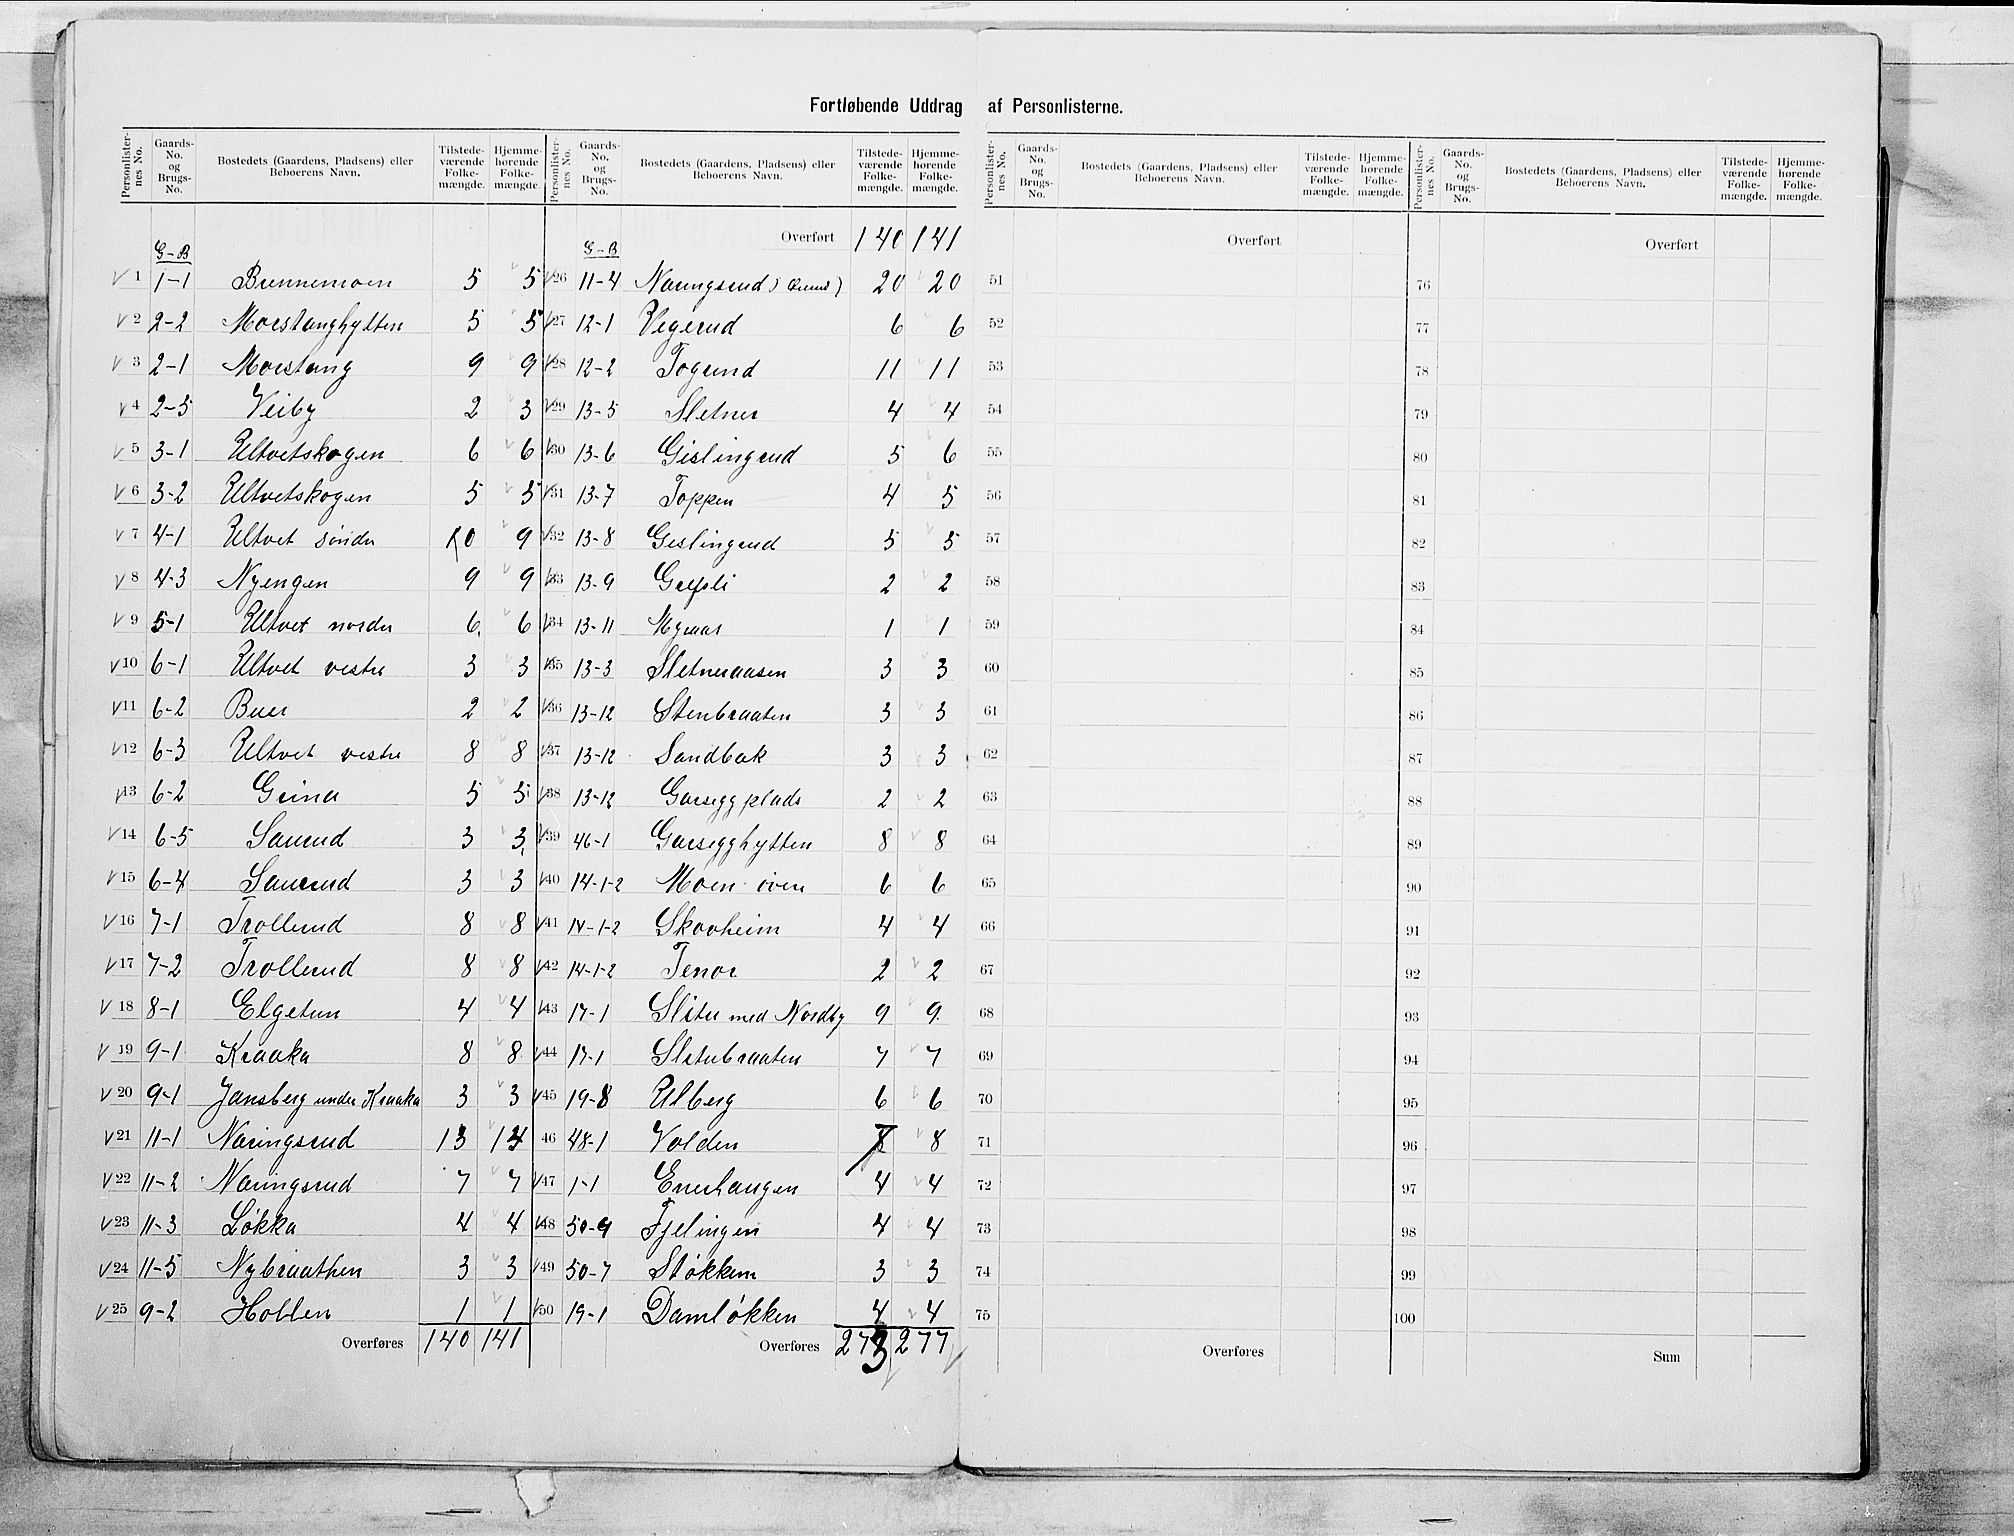 Fortløbende Uddrag af Personlisterne.
Personlisternes No. Gaards-No. og Brugs-No. Bostedets (Gaardens, Pladsens) eller Beboerens Navn. Tilstedeværende Folkemængde. Hjemmehørende Folkemængde.
G-B
1 1-1 Brennemoen 5 5
2 2-2 Morstanghytten 5 5
3 2-1 Morstang 9 9
4 2-5 Veiby 2 3
5 3-1 Ultvetskogen 6 6
6 3-2 Ultvetskogen 5 5
7 4-1 Ultvet söndre 10 9
8 4-3 Nyengen 9 9
9 5-1 Ultvet nordre 6 6
10 6-1 Ultvet vestre 3 3
11 6-2 Buer 2 2
12 6-3 Ultvet vestre 8 8
13 6-2 Grina 5 5
14 6-5 Saurud 3 3
15 6-4 Saurud 3 3
16 7-1 Trollerud 8 8
17 7-2 Trollerud 8 8
18 8-1 Elgetun 4 4
19 9-1 Kraaka 8 8
20 9-1 Jansberg under Kraaka 3 3
21 11-1 Naringsrud 13 14
22 11-2 Naringsrud 7 7
23 11-3 Løkka 4 4
24 11-5 Nybraathen 3 3
25 9-2 Hollen 1 1
Overføres 140 141
Personlisternes No. Gaards-No. og Brugs-No. Bostedets (Gaardens, Pladsens) eller Beboerens Navn. Tilstedeværende Folkemængde. Hjemmehørende Folkemængde.
G-B Overført 140 141
26 11-4 Naringsrud 20 20
27 12-1 Vegerud 6 6
28 12-2 Togrund 11 11
29 13-5 Sletner 4 4
30 13-6 Gislingrud 5 6
31 13-7 Toppen 4 5
32 13-8 Gislingrud 5 5
33 13-9 Grefsli 2 2
34 13-11 Myraas 1 1
35 13-3 Sletneraasen 3 3
36 13-12 Stenbraaten 3 3
37 13-12 Sandbak 3 3
38 13-12 Garseggplads 2 2
39 46-1 Garsegghytten 8 8
40 14-1-2 Moen övre 6 6
41 14-1-2 Skovheim 4 4
42 14-1-2 Tenor 2 2
43 17-1 Slitu med Nordby 9 9
44 17-1 Slitubraaten 7 7
45 19-8 Ulberg 6 6
46 48-1 Volden 7 8
47 1-1 Enerhaugen 4 4
48 50-9 Fjelingen 4 4
49 50-7 Støkken 3 3
50 19-1 Damløkken 4 4
Overføres 273 277
Personlisternes No. Gaards-No. og Brugs-No. Bostedets (Gaardens, Pladsens) eller Beboerens Navn. Tilstedeværende Folkemængde. Hjemmehørende Folkemængde.
Overført
51
52
53
54
55
56
57
58
59
60
61
62
63
64
65
66
67
68
69
70
71
72
73
74
75
Overføres
Personlisternes No. Gaards-No. og Brugs-No. Bostedets (Gaardens, Pladsens) eller Beboerens Navn. Tilstedeværende Folkemængde. Hjemmehørende Folkemængde.
Overført
76
77
78
79
80
81
82
83
84
85
86
87
88
89
90
91
92
93
94
95
96
97
98
99
100
Sum